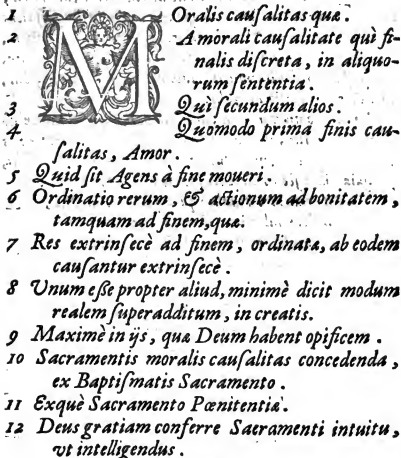 1 Moralis cauſalitas quæ.
2 A morali cauſalitate quì fi-
nalis diſcreta, in aliquo-
rum ſententia.
3 Quì ſecundum alios.
4 Quomodo prima finis cau-
ſalitas, Amor.
5 Quid ſit Agens à fine moueri.
6 Ordinatio rerum, & actionum ad bonitatem,
tamquam ad finem, quæ.
7 Res extrinſecè ad finem, ordinatæ, ab eodem
cauſantur extrinſecè.
8 Vnum eſſe propter aliud, minimè dicit modum
realem ſuperadditum, in creatis.
9 Maximè in ijs, quæ Deum habent opificem.
10 Sacramentis moralis cauſalitas concedenda,
ex Baptiſmatis Sacramento.
11 Exquè Sacramento Pœnitentiæ.
12 Deus gratiam conferre Sacramenti intuitu,
vt intelligendus.